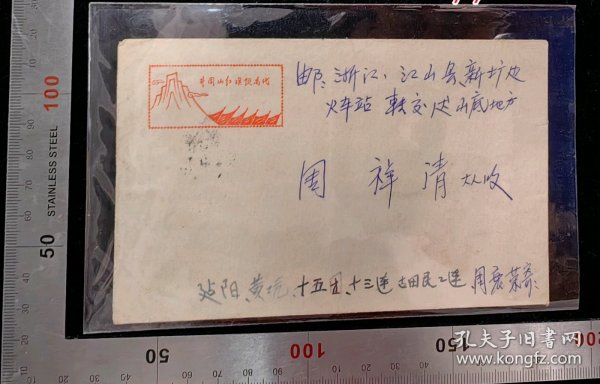 井冈山红旗飘万代
邮 浙江、江山县新圹边
火车站 转交达山底地方
周 祥 清 大人收
延阳、黄坑、十五团、十三连 古田民工连 周 荣寄
STAINLESS STEEL
100
50
50
100
150
200
孔夫子旧书网
www.kongfz.com